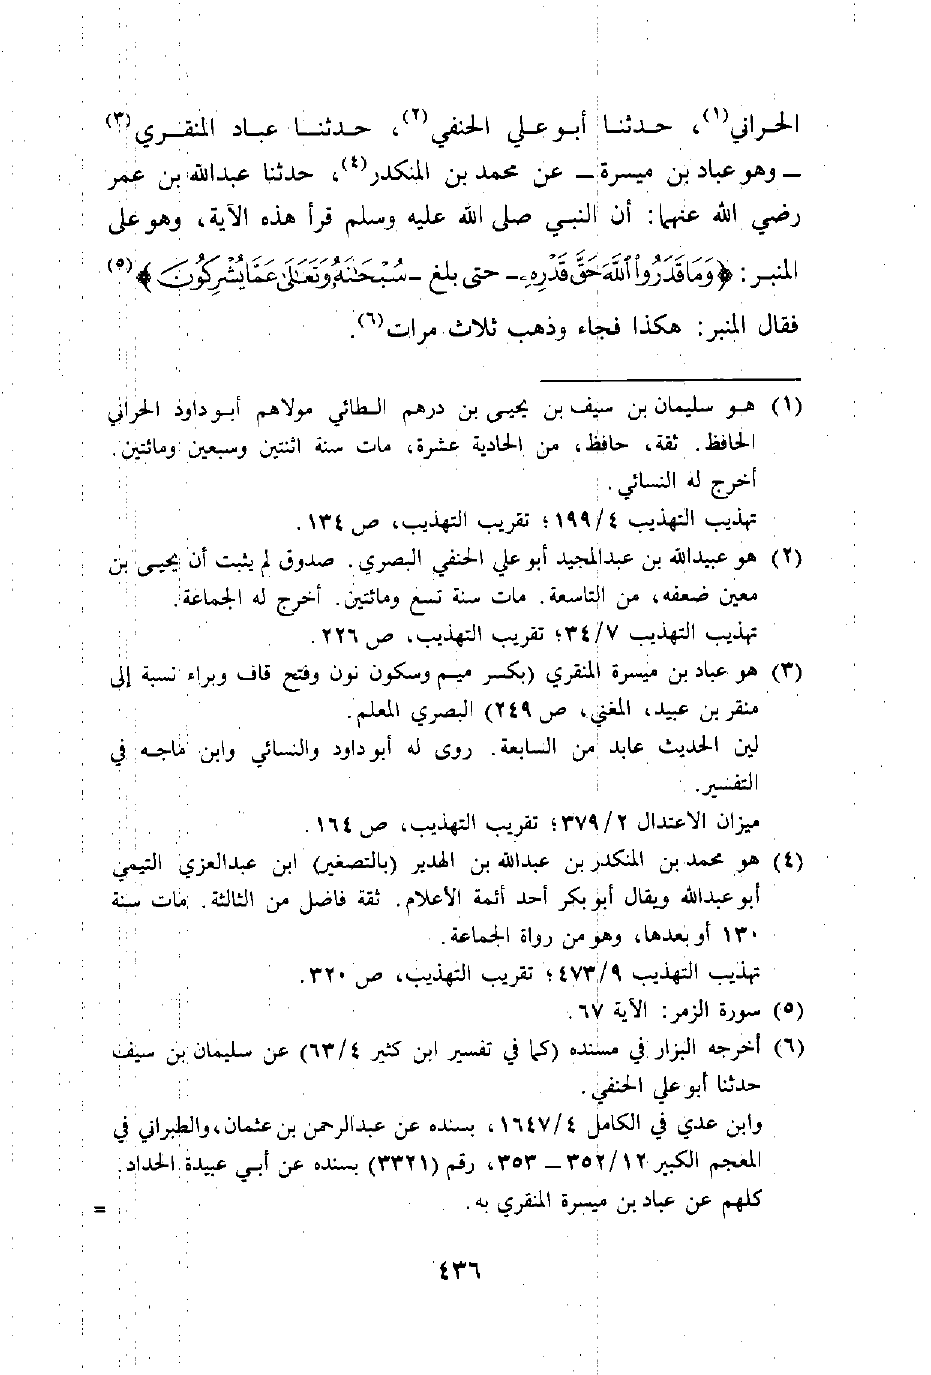 الحراني(١)، حدثنا أبو علي الحنفي(٢)، حدثنا عباد المنقري(٣)
ـ وهو عباد بن ميسرة ـ عن محمد بن المنكدر(٤)، حدثنا عبدالله بن عمر
رضي الله عنهما: أن النبي صلى الله عليه وسلم قرأ هذه الآية، وهو على
المنبر: ﴿وَمَا قَدَرُوا۟ ٱللَّهَ حَقَّ قَدْرِهِۦ ـ حتى بلغ ـ سُبْحَٰنَهُۥ وَتَعَٰلَىٰ عَمَّا يُشْرِكُونَ﴾(٥)
فقال المنبر: هكذا فجاء وذهب ثلاث مرات(٦).
(١) هو سليمان بن سيف بن يحيى بن درهم الطائي مولاهم أبو داود الحراني
الحافظ. ثقة، حافظ، من الحادية عشرة، مات سنة اثنتين وسبعين ومائتين.
أخرج له النسائي.
تهذيب التهذيب ١٩٩/٤؛ تقريب التهذيب، ص ١٣٤.
(٢) هو عبيدالله بن عبدالمجيد أبو علي الحنفي البصري. صدوق لم يثبت أن يحيى بن
معين ضعفه، من التاسعة. مات سنة تسع ومائتين. أخرج له الجماعة.
تهذيب التهذيب ٣٤/٧؛ تقريب التهذيب، ص ٢٢٦.
(٣) هو عباد بن ميسرة المنقري (بكسر ميم وسكون نون وفتح قاف وبراء نسبة إلى
منقر بن عبيد، المغني، ص ٢٤٩) البصري المعلم.
لين الحديث عابد من السابعة. روى له أبو داود والنسائي وابن ماجه في
التفسير.
ميزان الاعتدال ٣٧٩/٢؛ تقريب التهذيب، ص ١٦٤.
(٤) هو محمد بن المنكدر بن عبدالله بن الهدير (بالتصغير) ابن عبدالعزي التيمي
أبو عبدالله ويقال أبو بكر أحد أئمة الأعلام. ثقة فاضل من الثالثة. مات سنة
١٣٠ أو بعدها، وهو من رواة الجماعة.
تهذيب التهذيب ٤٧٣/٩؛ تقريب التهذيب، ص ٣٢٠.
(٥) سورة الزمر: الآية ٦٧.
(٦) أخرجه البزار في مسنده (كما في تفسير ابن كثير ٦٣/٤) عن سليمان بن سيف
حدثنا أبو علي الحنفي.
وابن عدي في الكامل ١٦٤٧/٤، بسنده عن عبدالرحمن بن عثمان، والطبراني في
المعجم الكبير ٣٥٢/١٢ ـ ٣٥٣، رقم (٣٣٢١) بسنده عن أبي عبيدة الحداد:
كلهم عن عباد بن ميسرة المنقري به.
=
٤٣٦